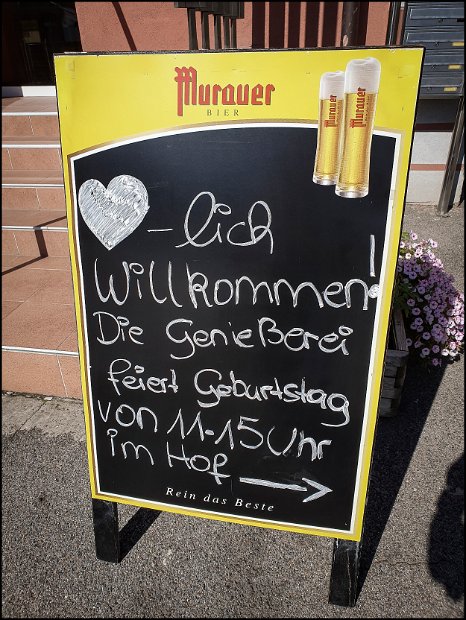 Murauer
BIER
Murauer
Murauer
-lich
Willkommen!
Die Genießerei
feiert Geburtstag
von 11-15 Uhr
im Hof →
Rein das Beste